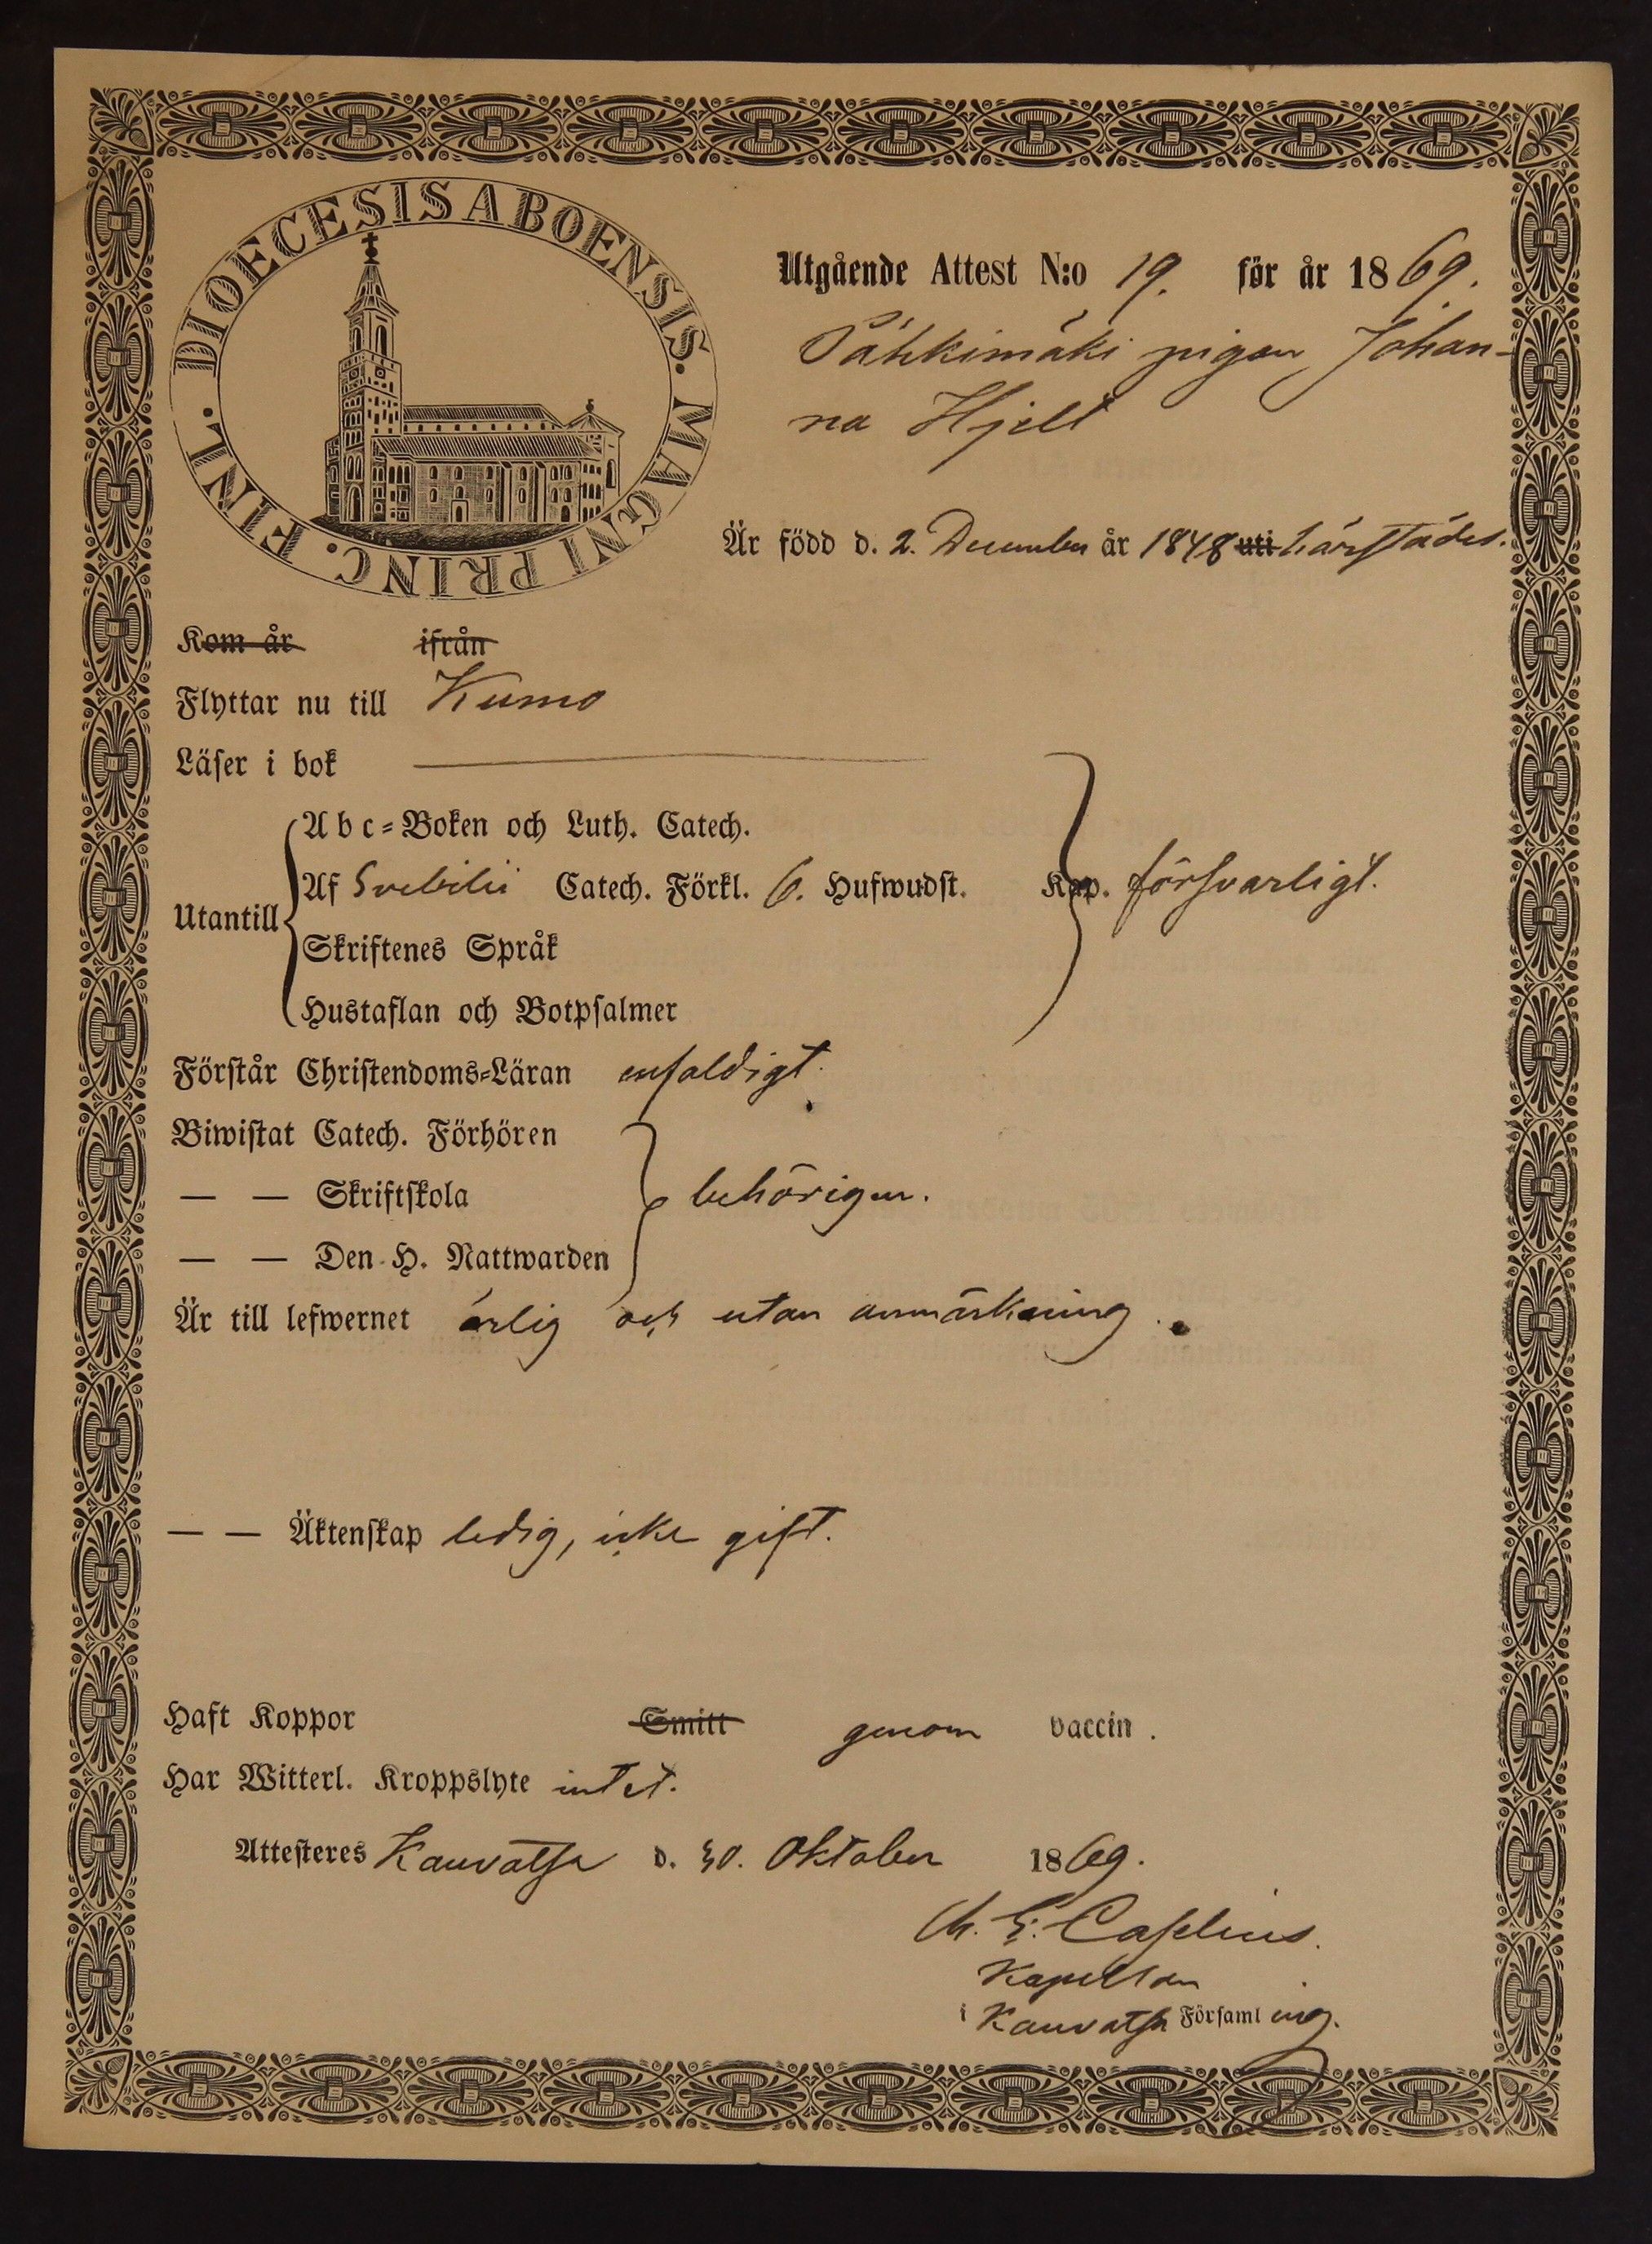 DIOECESIS ABOENSIS. MAGNI PRINC. FINL.
Utgående Attest N:o 19. för år 1869.
Pähkimäki pigan Johan-
na Hjelt
Är född d. 2. December år 1848 uti härstädes.
Kom år ifrån
Flyttar nu till Kumo
Läser i bok
Abc=Boken och Luth. Catech.
Utantill Af Svebilii Catech. Förkl. 6. Hufwudst. Kap. försvarligt.
Skriftenes Språk
Hustaflan och Botpsalmer
Förstår Christendoms=Läran enfaldigt.
Biwistat Catech. Förhören
— — Skriftskola behörigen.
— — Den H. Nattwarden
Är till lefwernet ärlig och utan anmärkning.
— — Äktenskap ledig, icke gift.
Haft Koppor Smitt genom vaccin.
Har Witterl. Kroppslyte intet.
Attesteres Kauvatsa d. 30. Oktober 1869.
Caselius.
Kapellan
i Kauvatsa Församling.